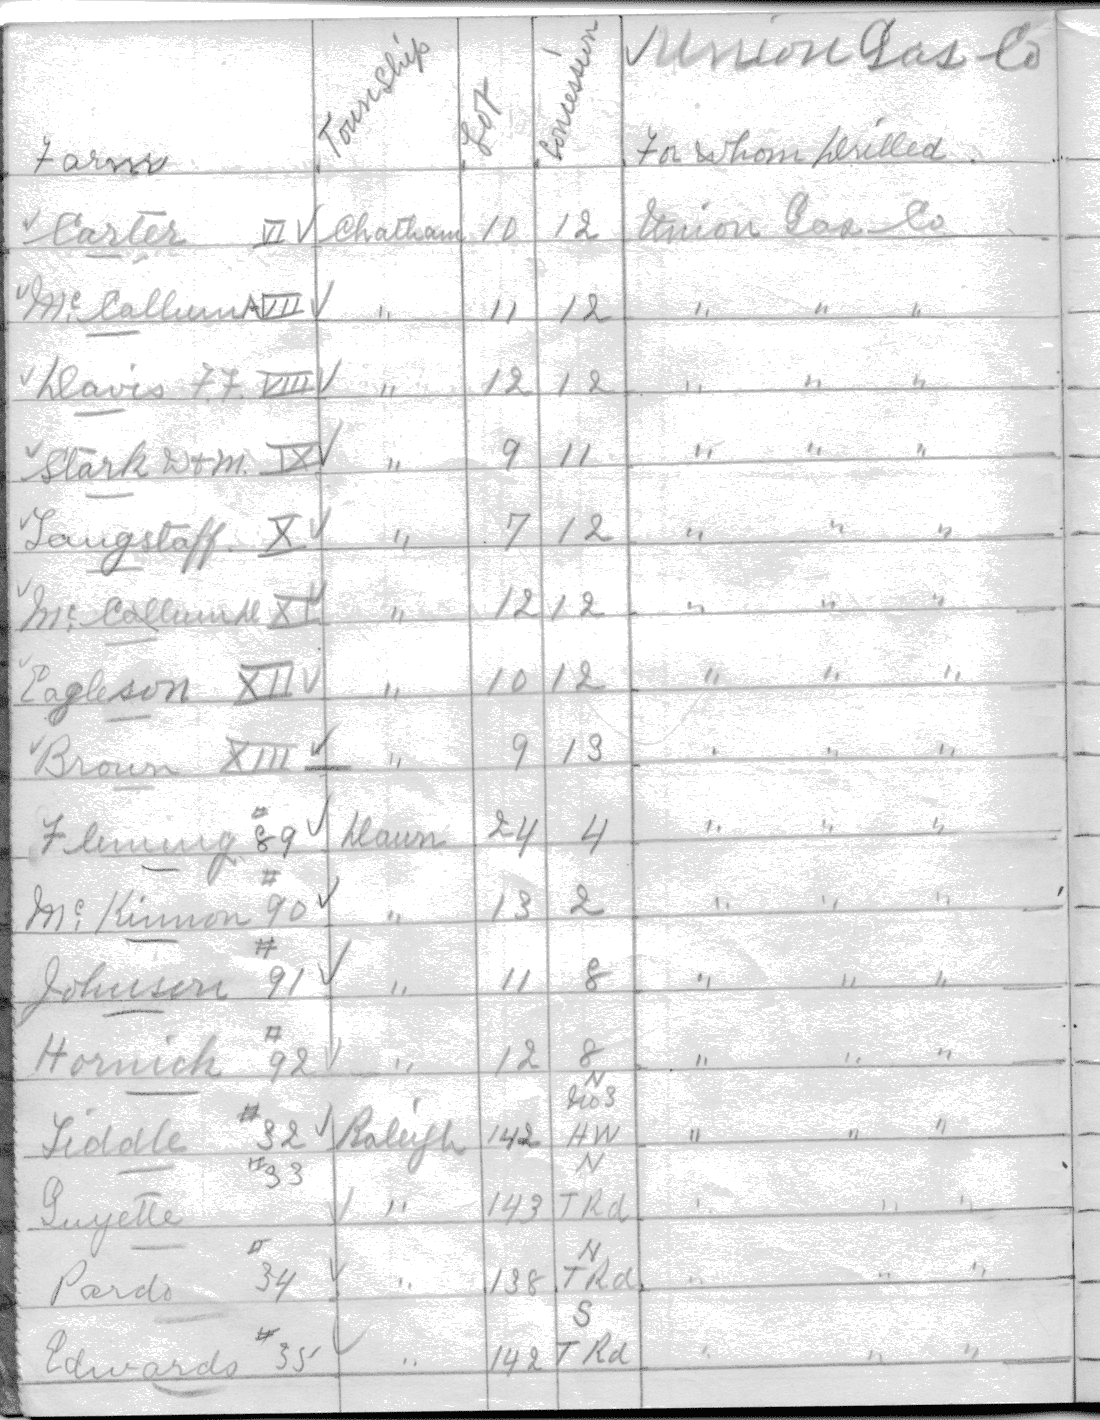 ✓ Union Gas Co
Farm Township Lot Concession For Whom Drilled.
✓ Carter VI ✓ Chatham 10 12 Union Gas Co
✓ Mc. Callum A VII ✓ " 11 12 " " "
✓ Davis F.F. VIII ✓ " 12 12 " " "
✓ Stark W+M. IX ✓ " 9 11 " " "
✓ Langstaff. X ✓ " 7 12 " " "
✓ Mc. Callum D XI ✓ " 12 12 " " "
✓ Eagleson XII ✓ " 10 12 " " "
✓ Brown XIII ✓ " 9 13 " " "
Fleming #89 ✓ Dawn 24 4 " " "
Mc. Kinnon #90 ✓ " 13 2 " " "
Johnson #91 ✓ " 11 8 " " "
Hornick #92 ✓ " 12 8 " " "
N
No 3
Liddle #32 ✓ Raleigh 142 HW " " "
#33 N
Guyette ✓ " 143 T Rd " " "
N
Pardo #34 ✓ " 138 T Rd " " "
S
Edwards #35 ✓ " 142 T Rd " " "